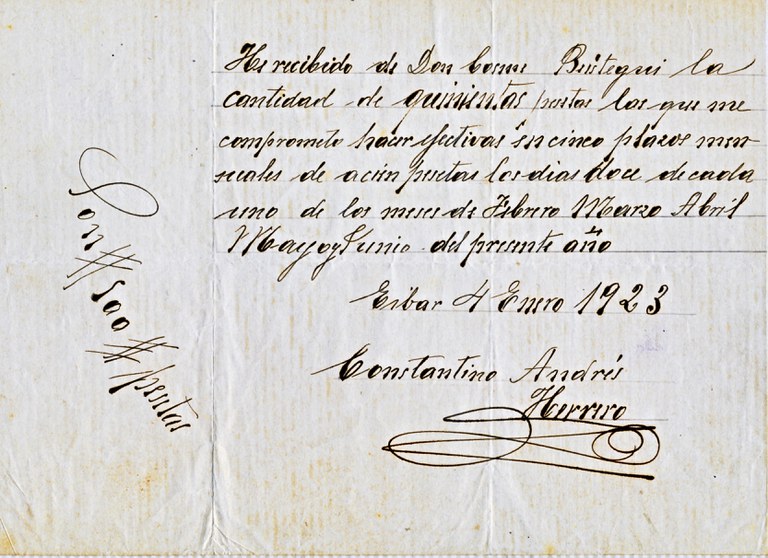 He recibido de Don Cosme Beistegui la
cantidad de quinientas pesetas las que me
comprometo hacer efectivas en cinco plazos men-
suales de acien pesetas los dias doce de cada
uno de los meses de Febrero Marzo Abril
Mayo y Junio del presente año
Eibar 4 Enero 1923
Constantino Andrés
Herrero
Son # 500 # pesetas